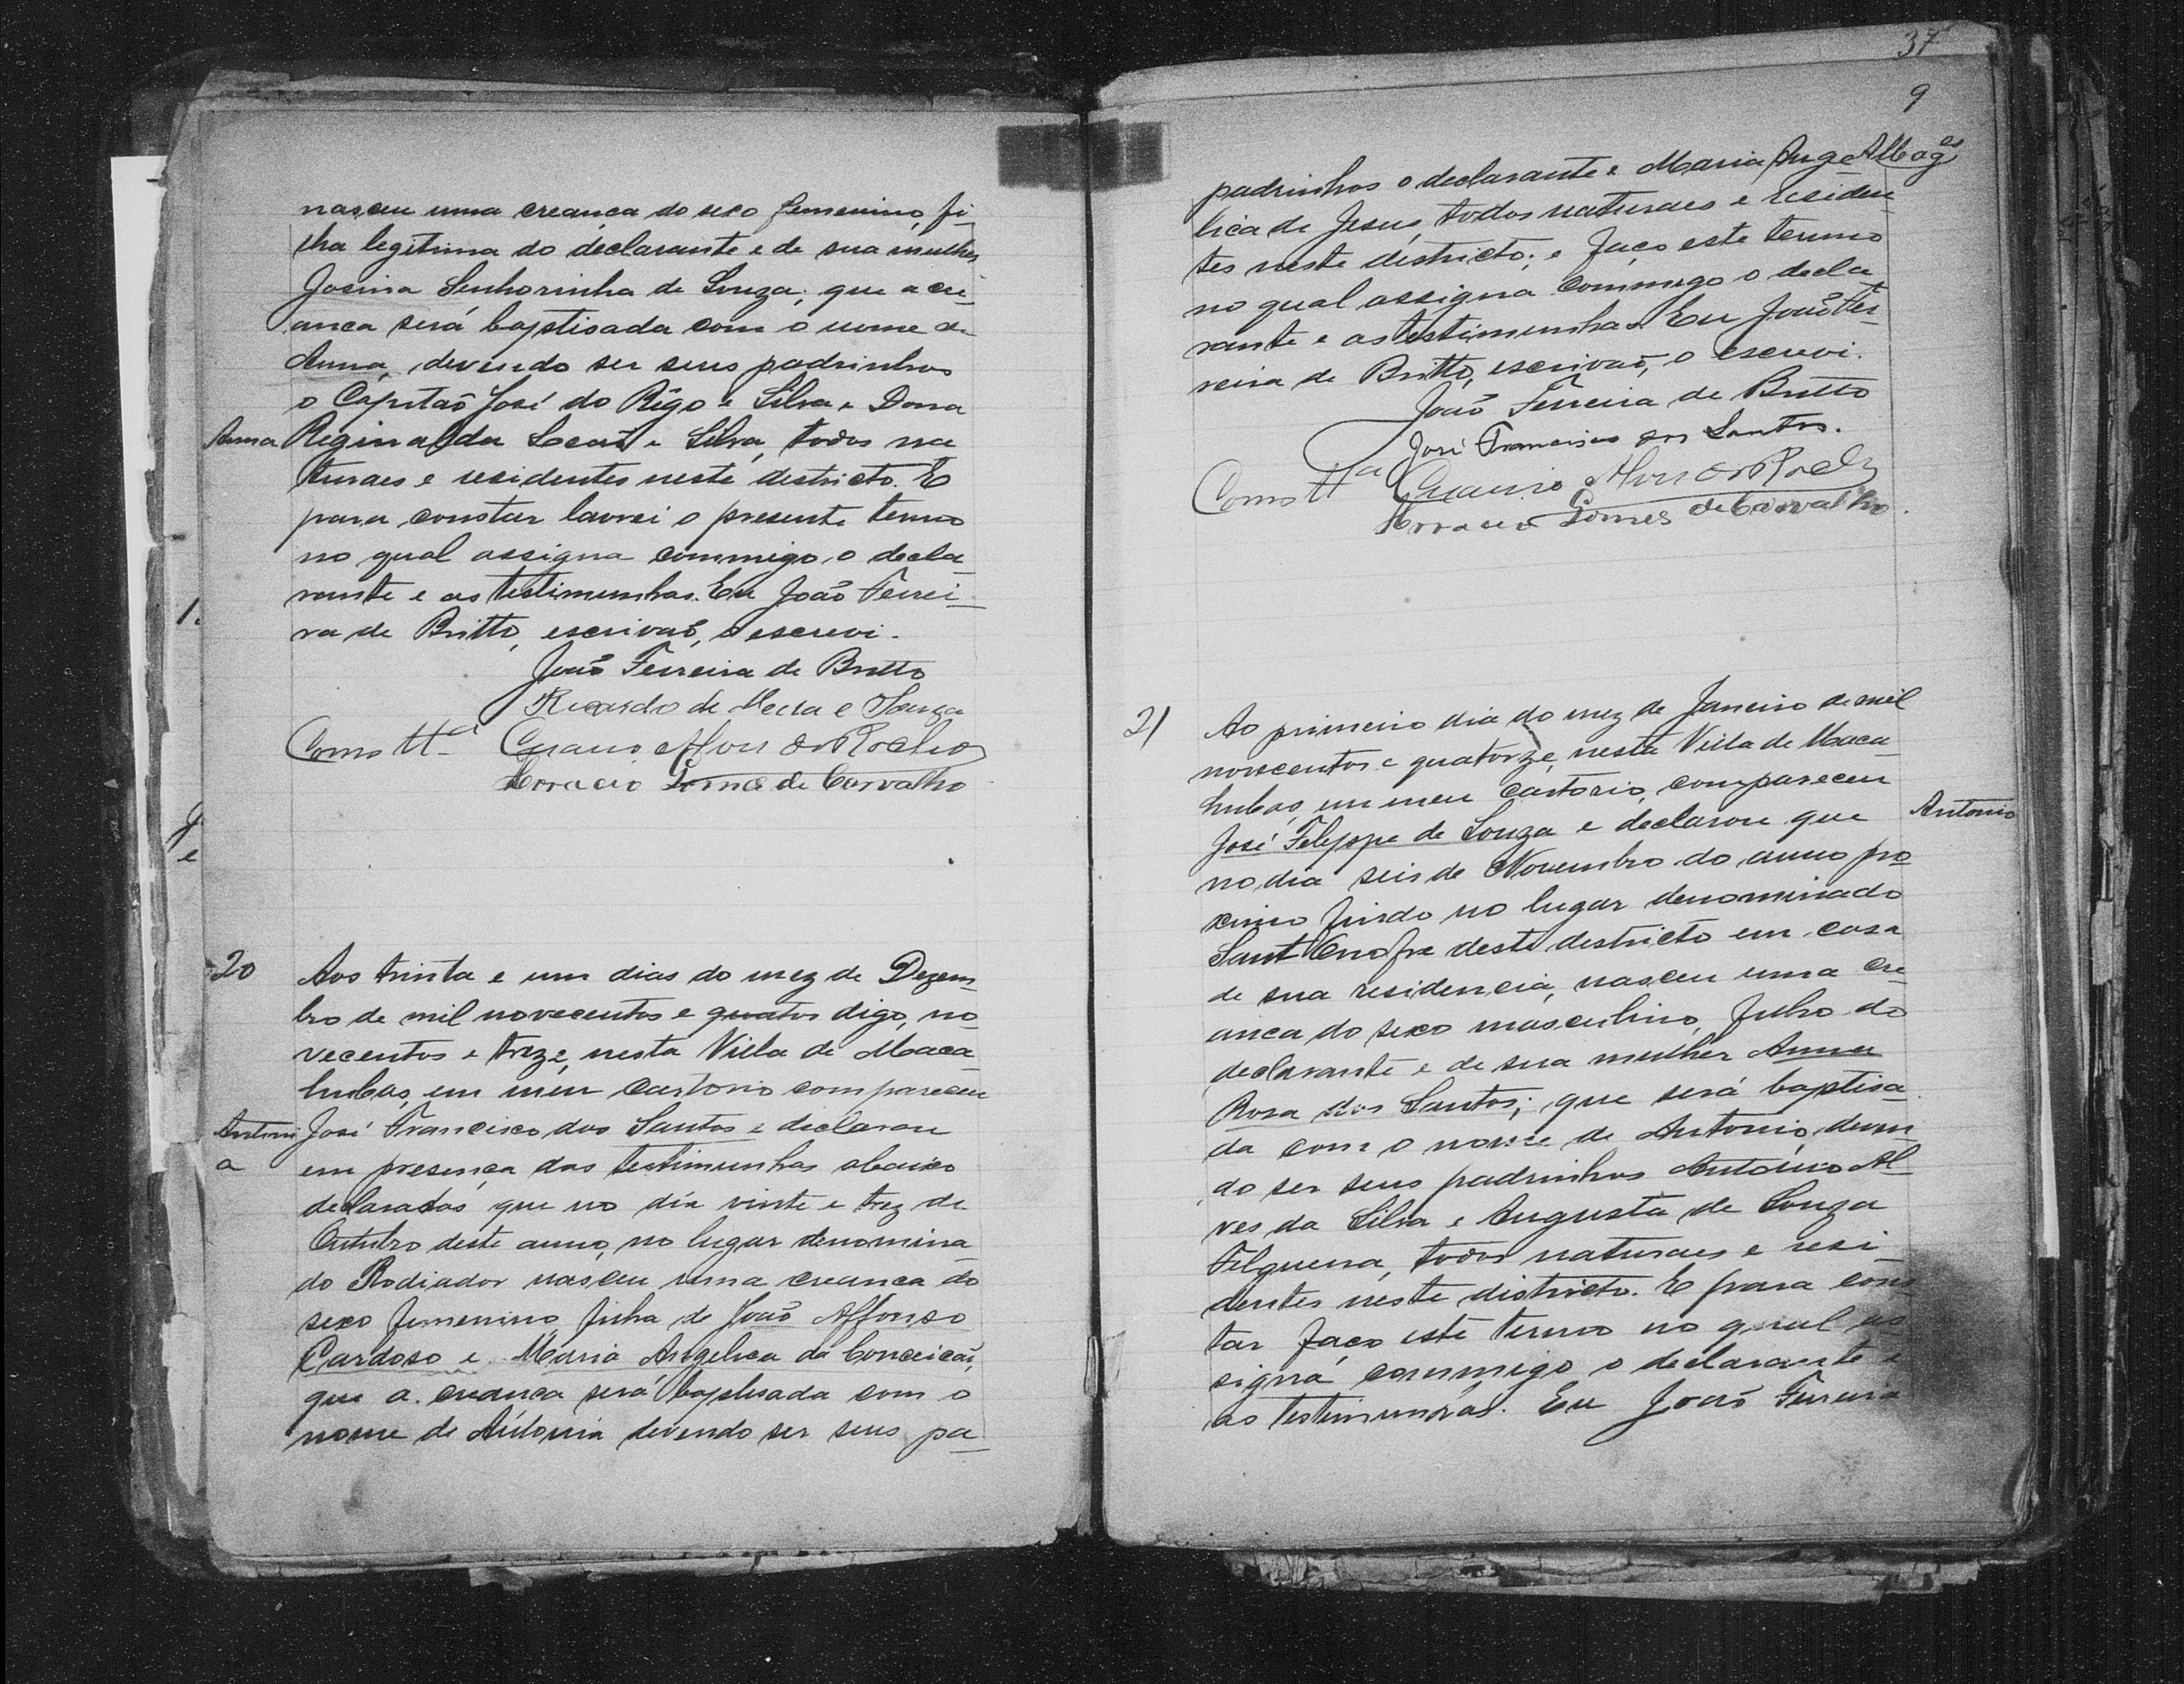 nasceu uma creança do sexo femenino, fi-
lha legitima do declarante e de sua mulher
Josina Senhorinha de Souza; que a cre-
anca será baptisada com o nome de
Anna, devendo ser seus padrinhos
o Capitaõ José do Rêgo e Silva e Dona
Anna
Reginalda Leaõ e Silva, todos na-
turaes e residentes neste destricto. E
para constar lavrei o presente termo
no qual assigna commigo o decla-
rante e as testimunhas. Eu João Ferrei-
ra de Britto, escrivaõ, o escrevi.
João Ferreira de Britto
Ricardo de e Souza
Como tta
da Rocha
Horacio Gomes de Carvalho
20
Aos trinta e um dias do mez de Dezem-
bro de mil novecentos e quator digo, no-
vecentos e treze, nesta Villa de Maca-
hubas, em meu cartorio compareceu
Antoni
a
José Francisco dos Santos e declarou
em presença das testimunhas abaixo
declaradas que no dia vinte e trez de
Outubro deste anno, no lugar denomina-
do Rodiador nasceu uma creanca do
sexo femenino filha de João Affonso
Cardoso e Maria Angelica da Conceicaõ,
que a creanca será baptisada com o
nome de Antonia devendo ser seus pa-
37
9
padrinhos o declarante e Maria Ange
lica de Jesus, todos naturaes e residen-
tes neste destricto; e faço este termo
no qual assigna commigo o decla-
rante e as testimunhas. Eu João Fer-
reira de Britto, escrivaõ, o escrevi.
João Ferreira de Britto
José Francisco dos Santos.
Como tta
da Rocha
Horacio Gomes de Carvalho.
21
Ao primeiro dia do mez de Janeiro de mil
novecentos e quatorze, nesta Villa de Maca-
hubas, em meu Cartorio, compareceu
José Felippe de Souza e declarou que
Antonio
no dia seis de Novembro do anno pro-
ximo findo no lugar denominado
Sant'Onofre deste destricto em casa
de sua residencia, nasceu uma cre-
anca do sexo masculino, filho do
declarante e de sua mulher Anna
Rosa dos Santos; que será baptisa-
da com o nome de Antonio, deven-
do ser seus padrinhos Antonio Al-
ves da Silva e Augusta de Souza
Filgueira, todos naturaes e resi-
dentes neste districto. E para cons-
tar faço este termo no qual as-
signa commigo o declarante e
as testimunhas. Eu João Ferreira